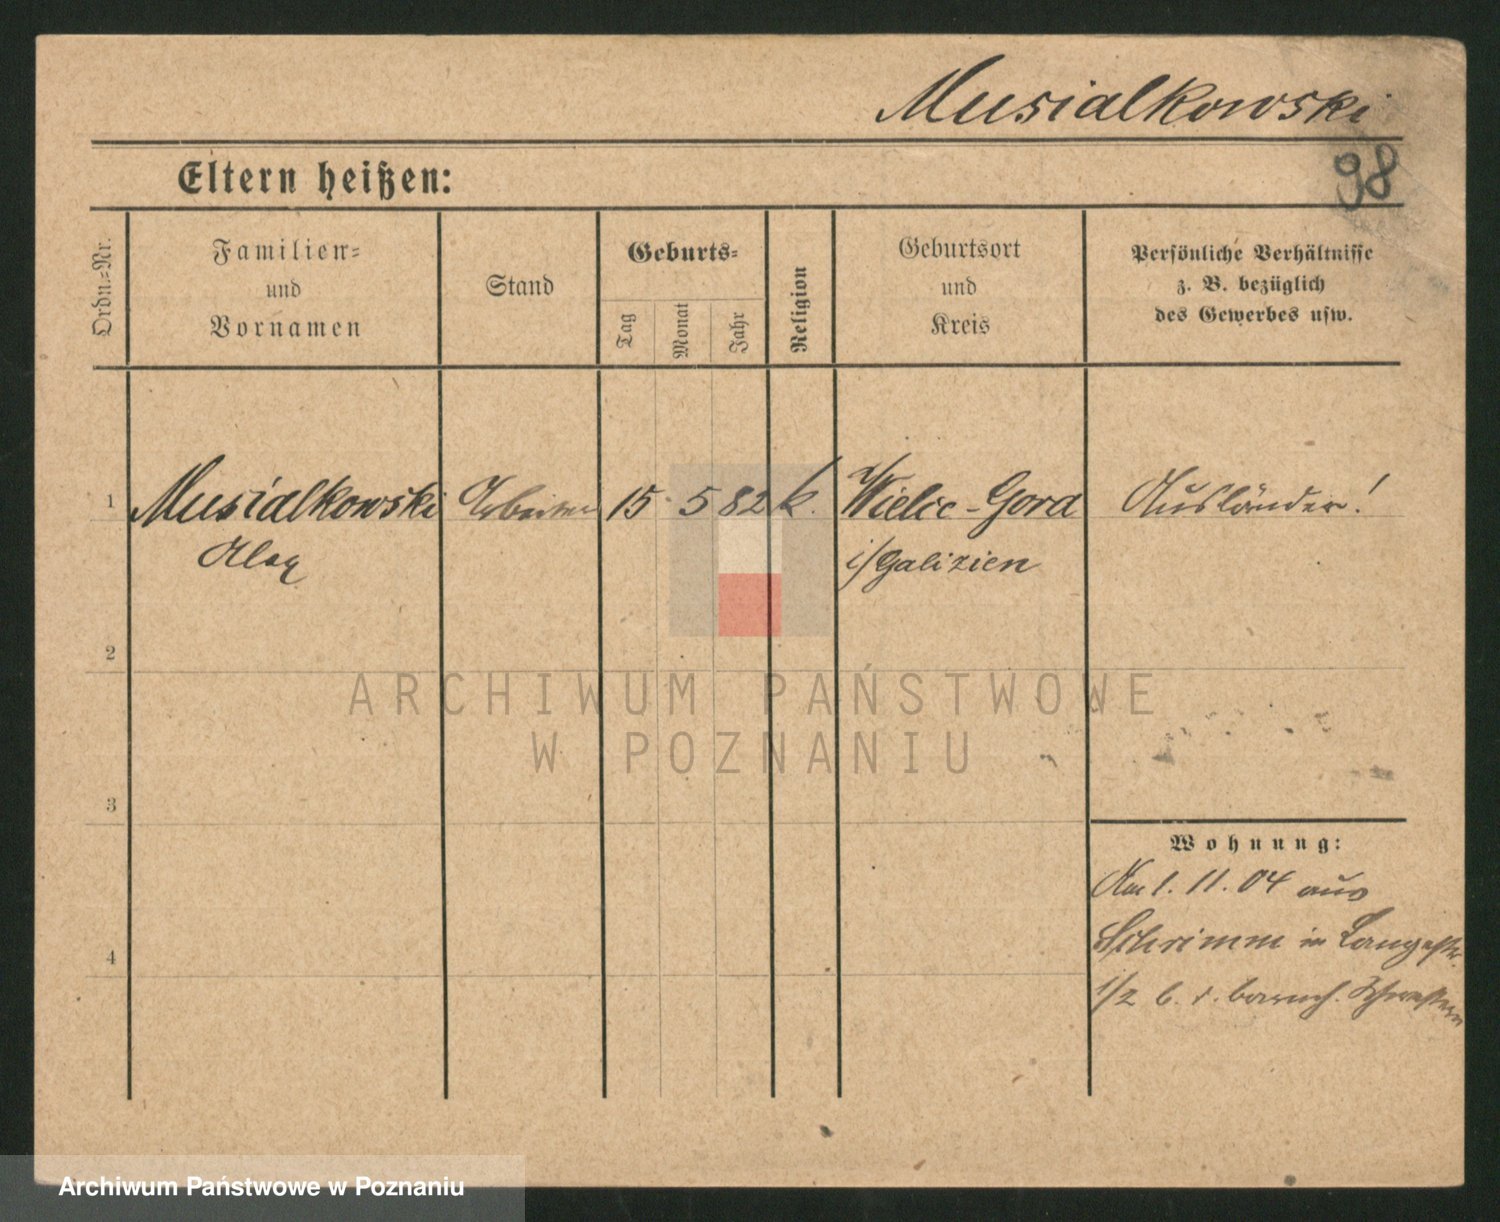 Musialkowski
98
Eltern heißen:
Ordn.-Nr.
Familien-
und
Vornamen
Stand
Geburts-
Tag
Monat
Jahr
Religion
Geburtsort
und
Kreis
Persönliche Verhältnisse
z. B. bezüglich
des Gewerbes usw.
1 Musialkowski Arbeiter 15 5 82 k. Wielic-Gora Ausländer!
i/Galizien
2
ARCHIWUM PAŃSTWOWE
W POZNANIU
3
Wohnung:
Am 1. 11. 04 aus
Schrimm in Langestr.
4
1/2 b. d. barmh. Schwestern
Archiwum Państwowe w Poznaniu